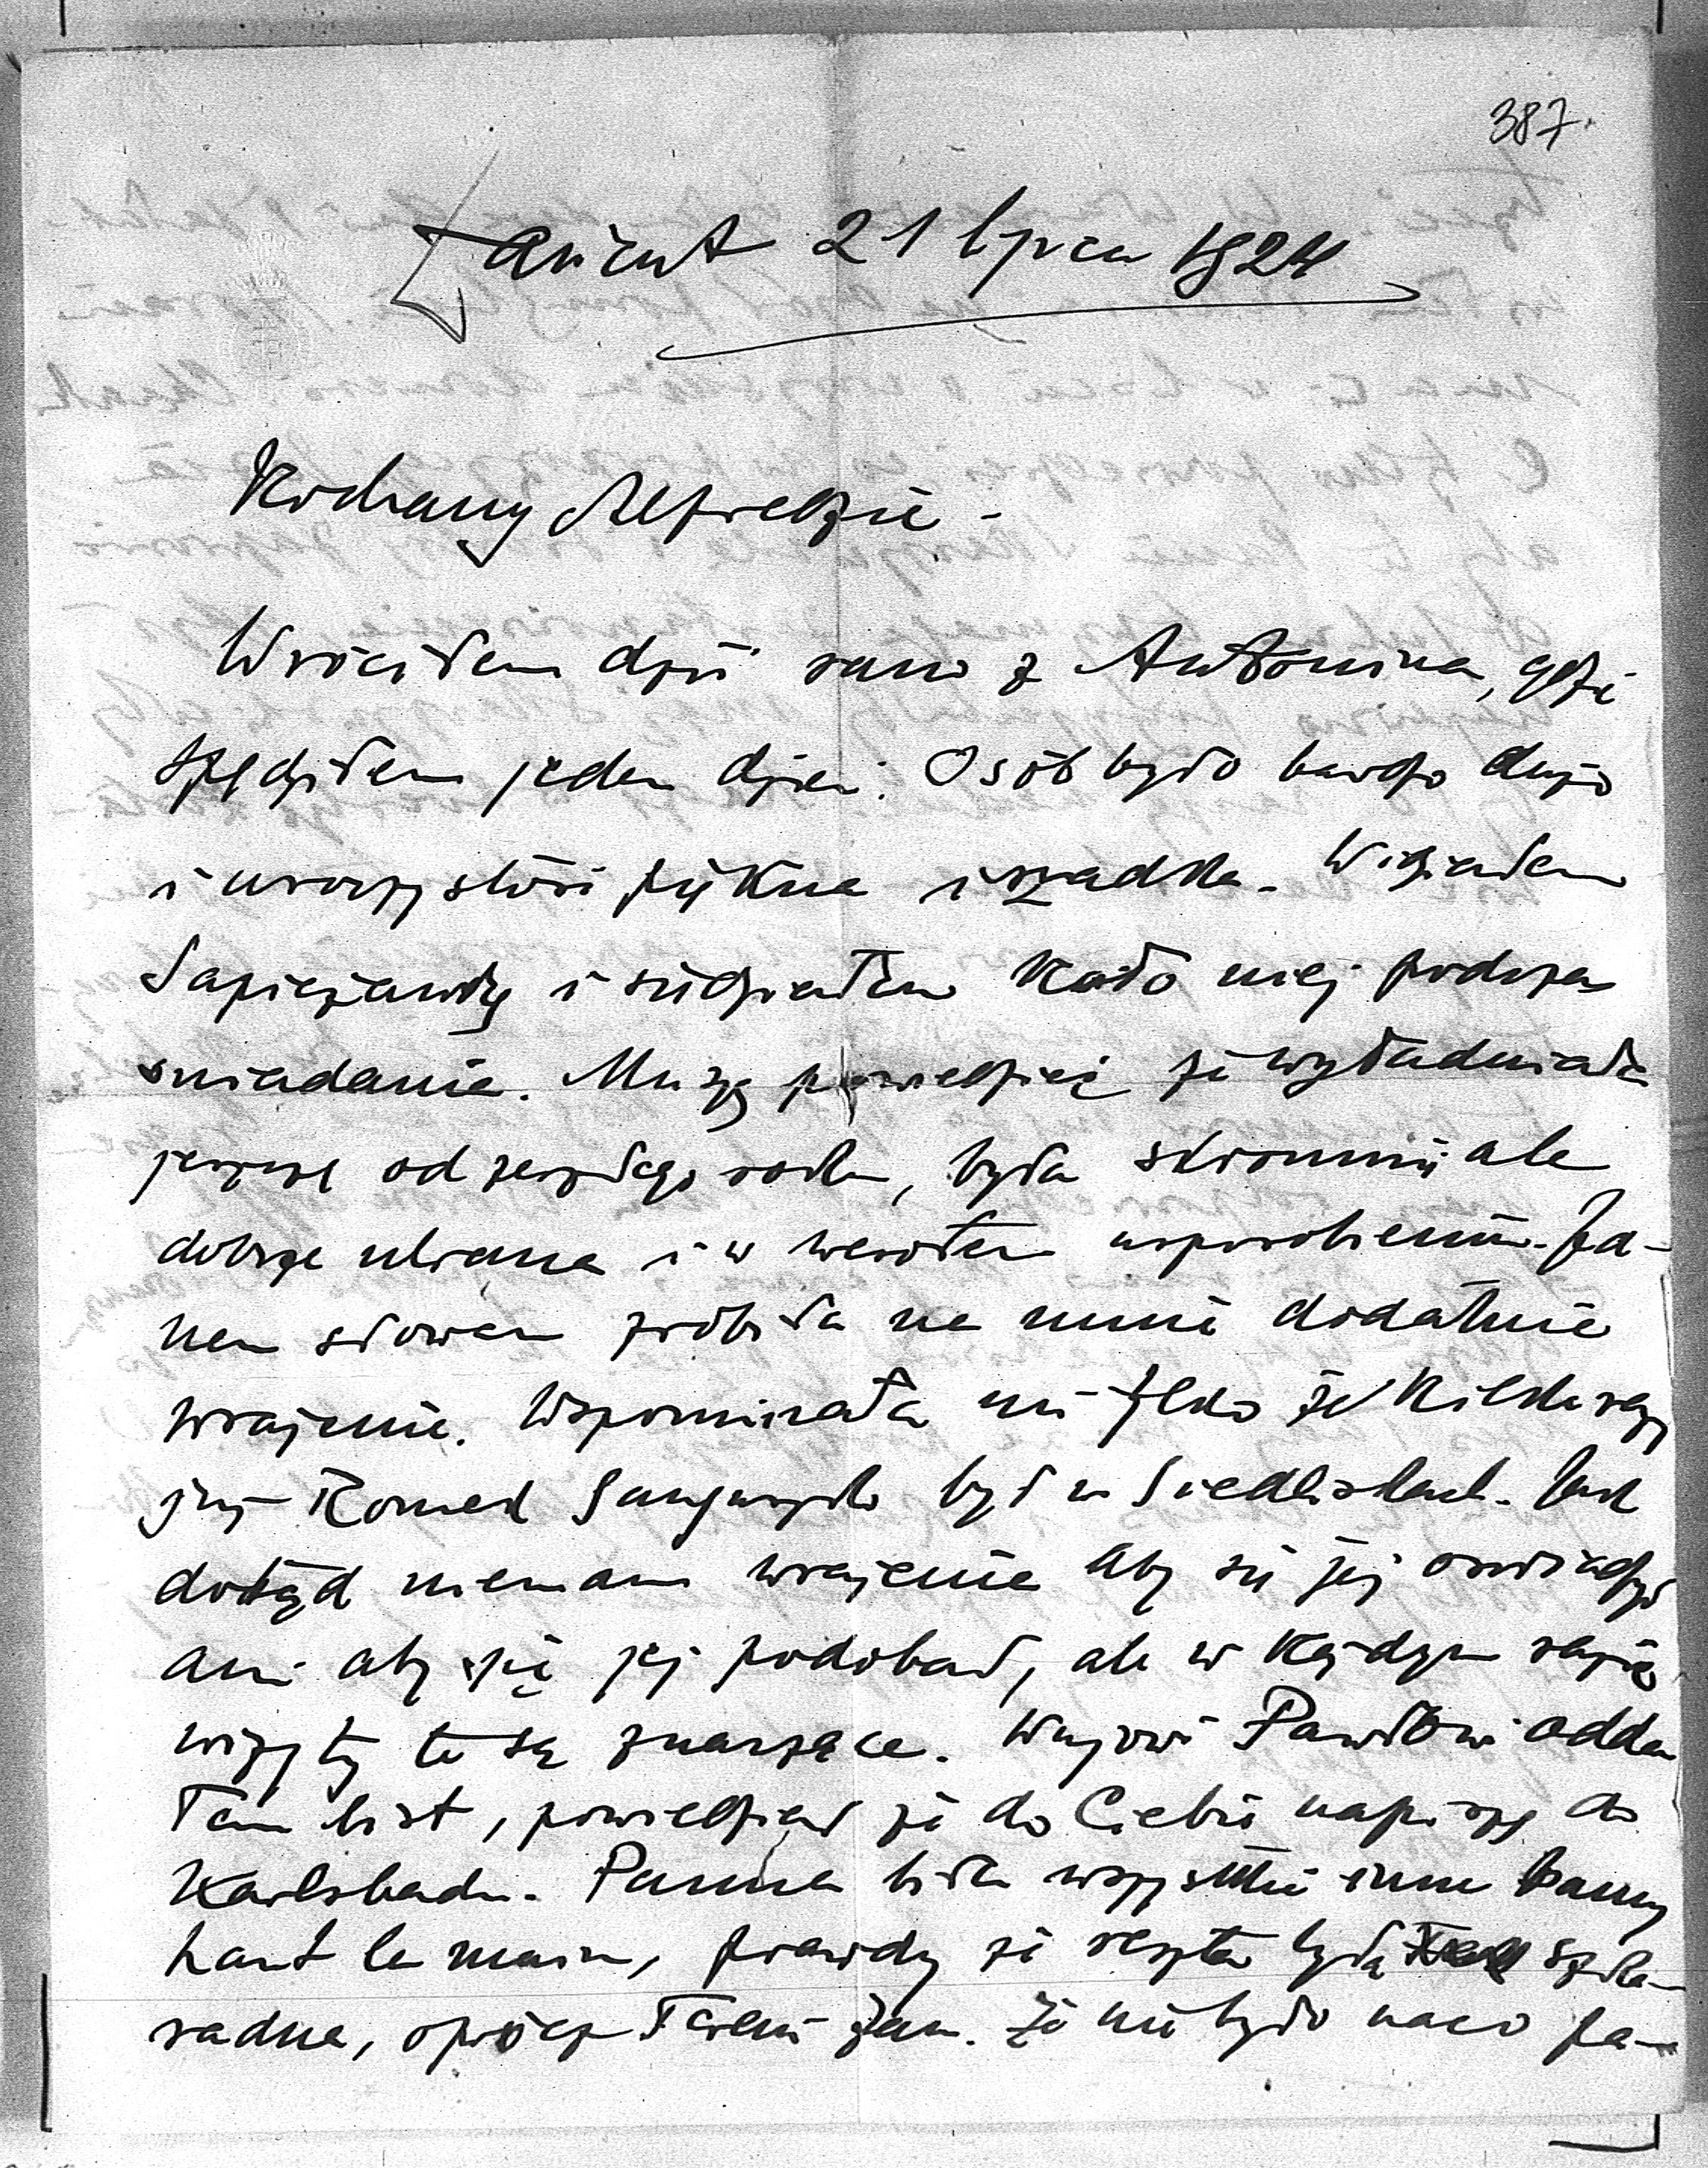 387.
Łańcut 21 lipca 1924
Kochany Alfredzie -
Wróciłem dziś rano z Antonina, gdzie
spędziłem jeden dzień. Osób było bardzo dużo
i uroczystość piękna i rzadka. Widziałem
Sapieżankę i siedziałem koło niej podczas
śniadania. Muszę powiedzieć że wyładniała
jeszcze od zeszłego roku, była skromnie ale
dobrze ubrana i w wesołem usposobieniu. Jed-
nem słowem zrobiła na mnie dodatnie
wrażenie. Wspominała mi tylko że kilka razy
już Romed Sanguszko był w Siedliskach. Jak
dotąd niemam wrażenie aby się jej oświadczył
ani aby się jej podobał, ale w każdym razie
wizyty te są znaczące. Wujowi Pawłowi odda-
łem list, powiedział że do Ciebie napiszę do
Karlsbadu. Panna biła wszystkie inne panny
haut la main, prawdę że reszta była szka-
radna, oprócz żon. Że nie było naco pa-